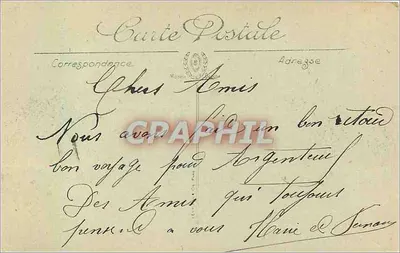 Carte Postale
Correspondance
Adresse
Chers Amis
Nous avons fait un bon retour
CRAPHIL
bon voyage pour Argenteuil
Des Amis qui toujours
pense a vous Marie et Fernand